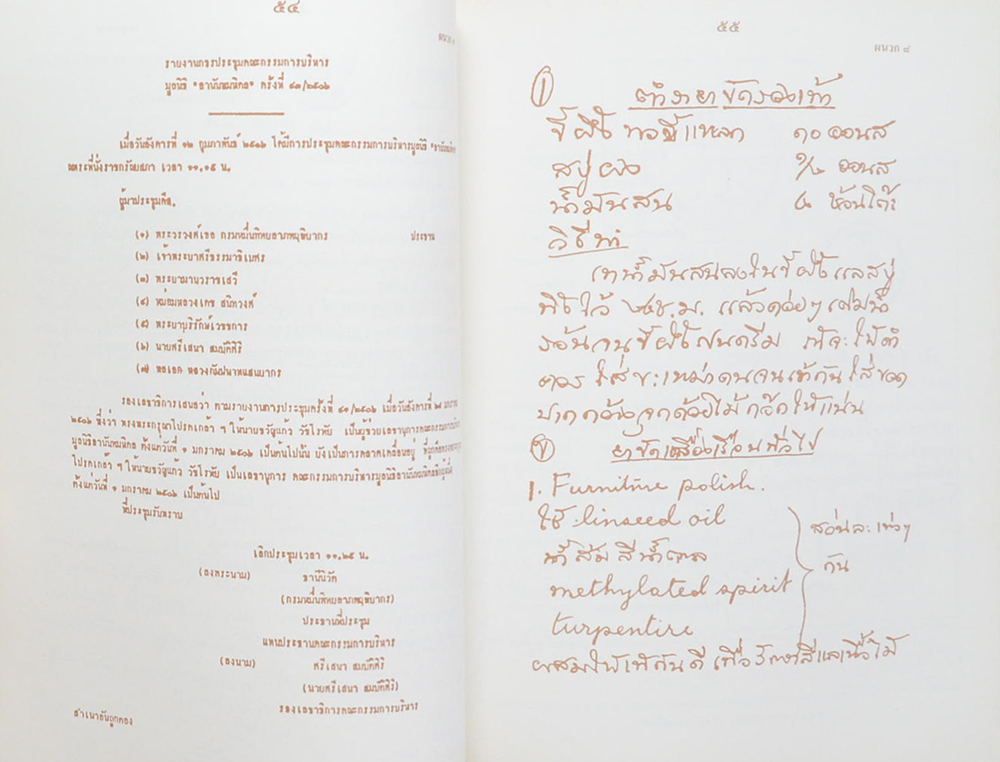 ๕๔
ผนวก
รายงานการประชุมคณะกรรมการบริหาร
มูลนิธิ "อานันทมหิดล" ครั้งที่ ๔๓/๒๕๐๖
เมื่อวันอังคารที่ ๑๒ กุมภาพันธ์ ๒๕๐๖ ได้มีการประชุมคณะกรรมการบริหารมูลนิธิ "อานันทมหิดล"
ณพระที่นั่งราชกรัณยสภา เวลา ๑๑.๑๕ น.
ผู้มาประชุมคือ.
(๑) พระวรวงศ์เธอ กรมหมื่นพิทยลาภพฤฒิยากร ประธาน
(๒) เจ้าพระยาศรีธรรมาธิเบศร
(๓) พระยามานวราชเสวี
(๔) หม่อมหลวงเดช สนิทวงศ์
(๕) พระยาบุรีรักษ์เวชชการ
(๖) นายศรีเสนา สมบัติศิริ
(๗) พลเอก หลวงกัมปนาทแสนยากร
รองเลขาธิการเสนอว่า ตามรายงานการประชุมครั้งที่ ๔๑/๒๕๐๖ เมื่อวันอังคารที่
๒๕๐๖ ซึ่งว่า ทรงพระกรุณาโปรดเกล้า ฯ ให้นายขวัญแก้ว วัชโรทัย เป็นผู้ช่วยเลขานุการคณะกรรมการบริหาร
มูลนิธิอานันทมหิดล ตั้งแต่วันที่ ๑ มกราคม ๒๕๐๖ เป็นต้นไปนั้น ยังเป็นการคลาดเคลื่อนอยู่ ที่ถูกคือ
โปรดเกล้า ฯ ให้นายขวัญแก้ว วัชโรทัย เป็นเลขานุการ คณะกรรมการบริหารมูลนิธิอานันทมหิดล
ตั้งแต่วันที่ ๑ มกราคม ๒๕๐๖ เป็นต้นไป
ที่ประชุมรับทราบ
เลิกประชุมเวลา ๑๑.๒๕ น.
(ลงพระนาม) ธานีนิวัต
(กรมหมื่นพิทยลาภพฤฒิยากร)
ประธานที่ประชุม
แทนประธานคณะกรรมการบริหาร
(ลงนาม) ศรีเสนา สมบัติศิริ
(นายศรีเสนา สมบัติศิริ)
รองเลขาธิการคณะกรรมการบริหาร
สำเนาอันถูกต้อง
๕๕
ผนวก ๘
๑ ตำรายาขัดรองเท้า
ขี้ผึ้ง ๑๐ ออนส
สบู่ผง ๑/๒ ออนส
น้ำมันสน ๘ ช้อนโต๊ะ
วิธีทำ
เทน้ำมันสนลงในขี้ผึ้งแลสบู่
ทิ้งไว้ ๒๔ ช.ม. แล้วค่อยๆ เติมน้ำ
ร้อนจนขี้ผึ้งเปนครีม ถ้าจะให้ดำ
ควรใส่ เขม่า คนจนเข้ากัน ใส่ขวด
ปากกว้างจุกด้วยไม้ก๊อกให้แน่น
๒ ยาขัดเครื่องเรือนทั่วไป
1. Furniture polish.
ใช้ linseed oil
น้ำส้มสีน้ำตาล
methylated spirit
turpentine
ส่วนละเท่าๆ
กัน
ผสมให้เข้ากันดี เพื่อรักษาสีแลเนื้อไม้